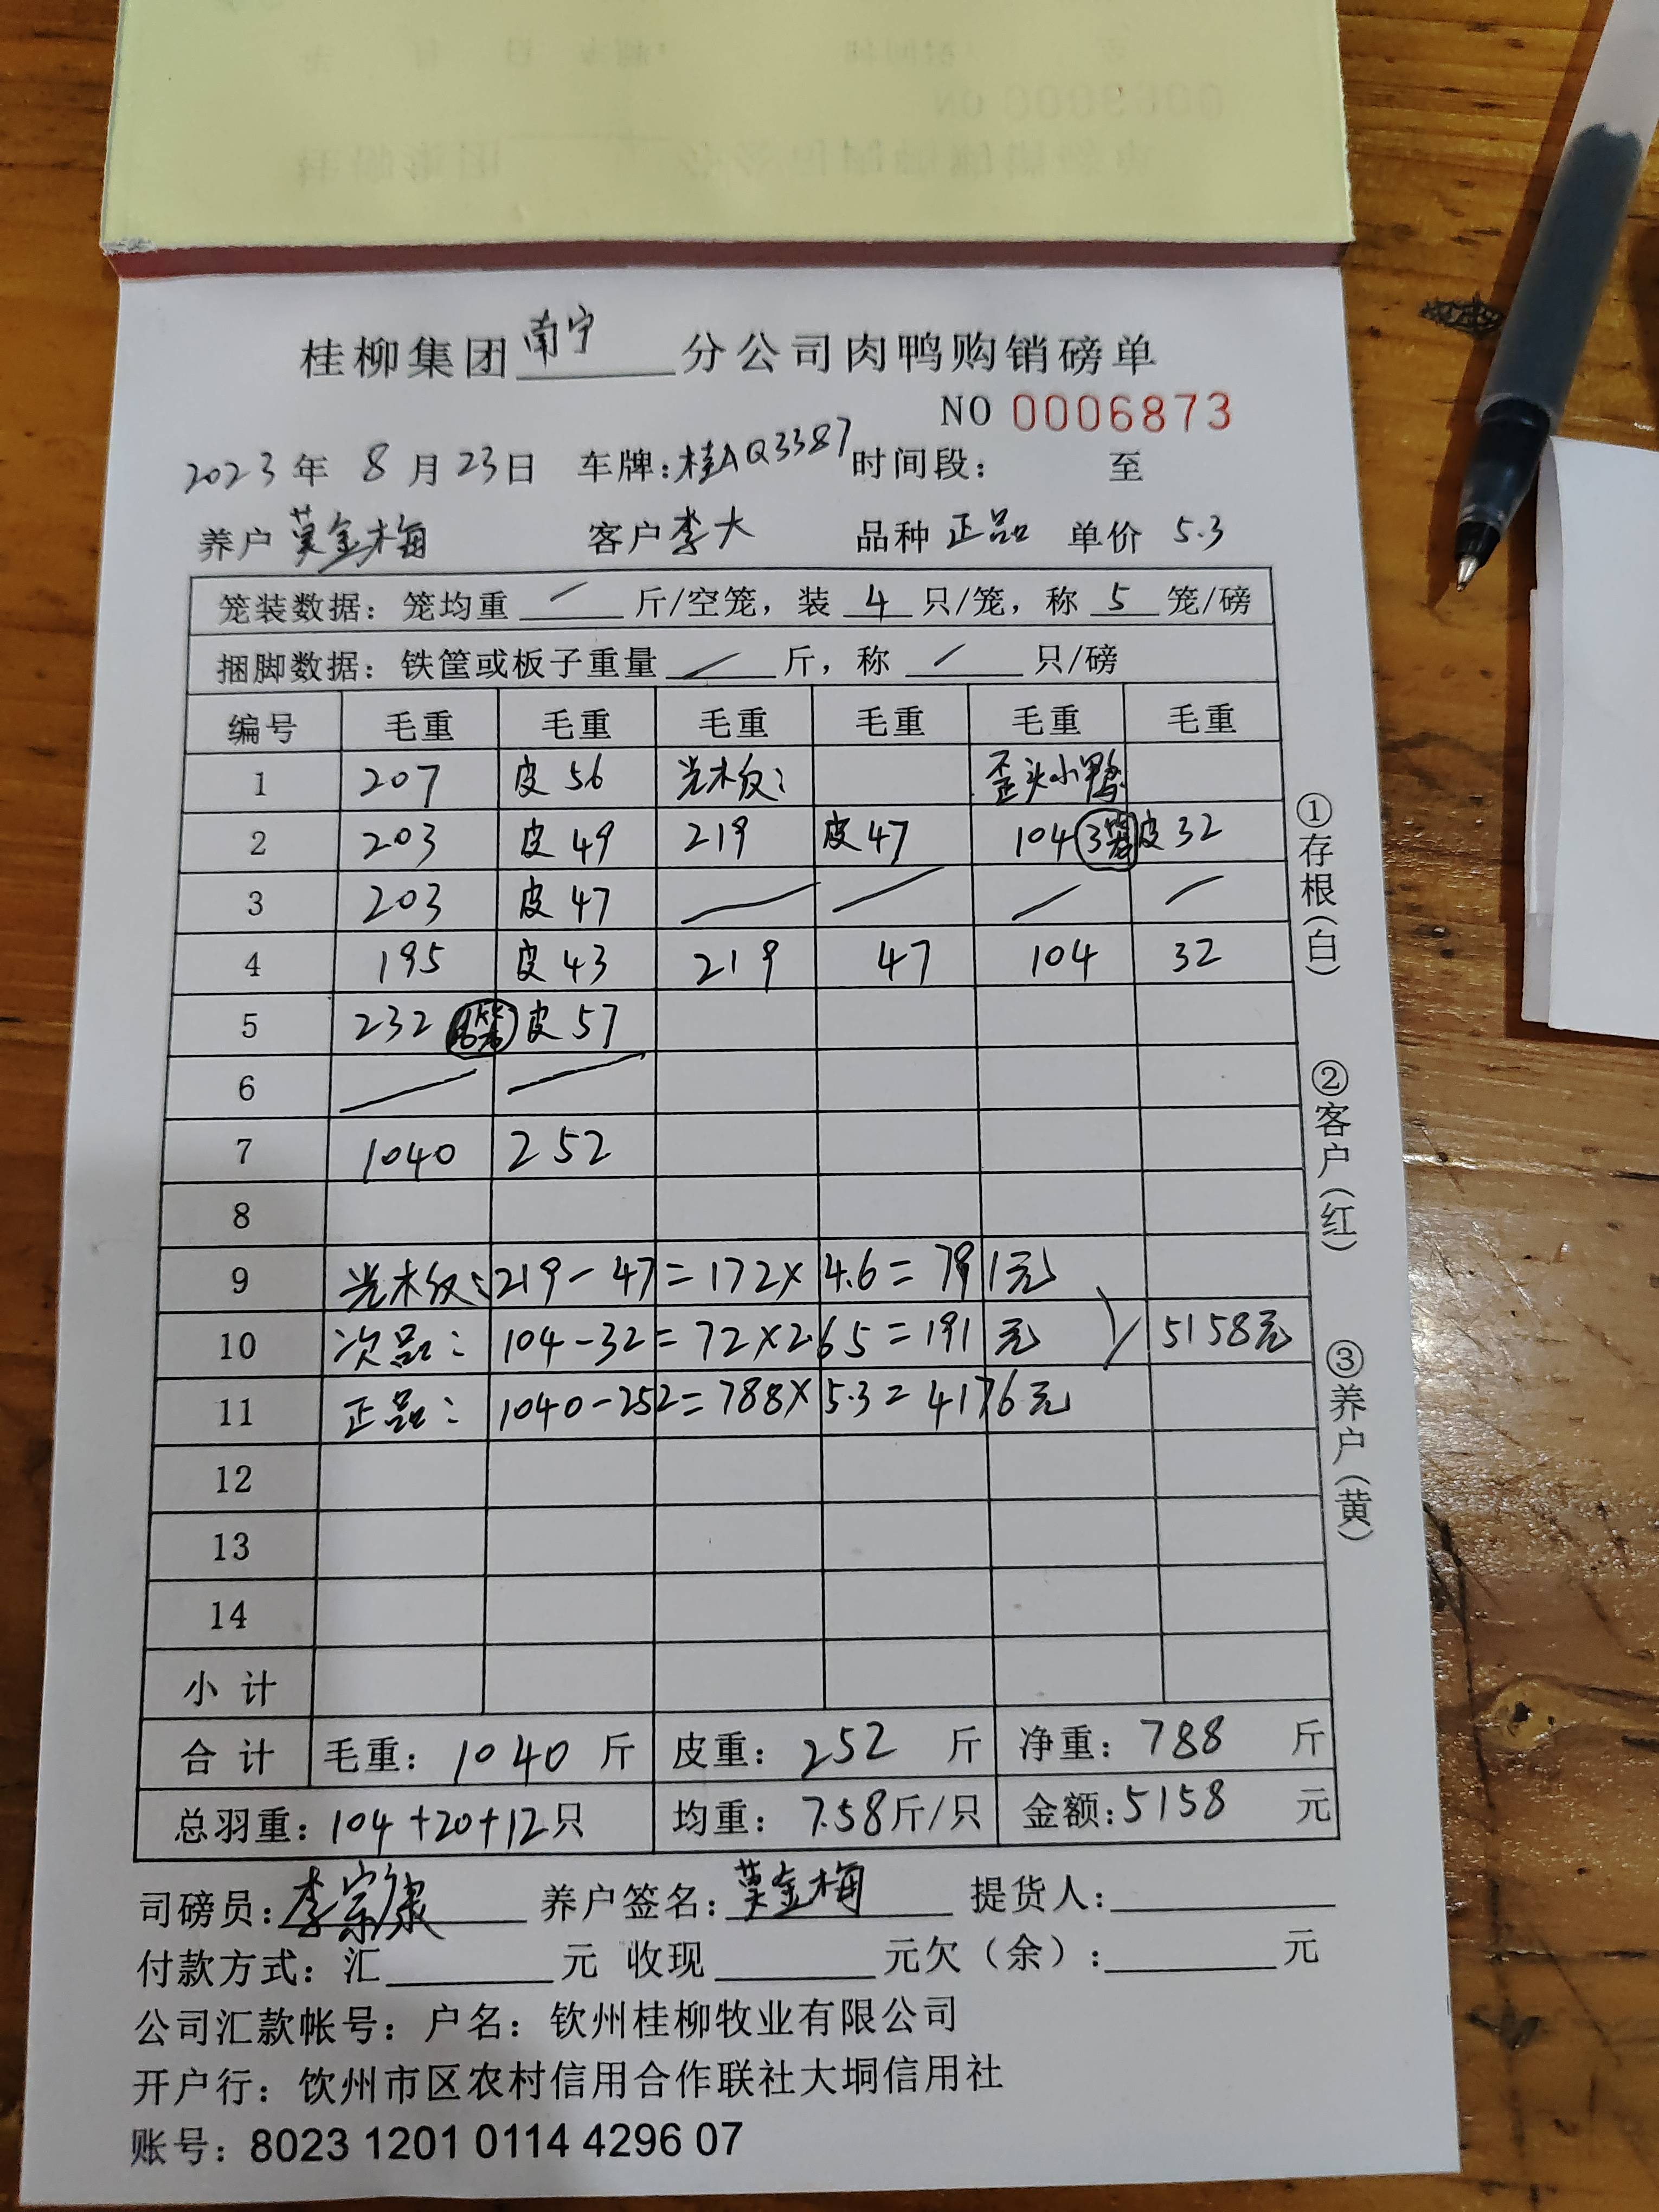 桂柳集团南宁分公司肉鸭购销磅单
NO 0006873
2023年 8月23日 车牌:桂AQ3387 时间段: 至
养户 莫金梅 客户 李大 品种 正品 单价 5.3
笼装数据:笼均重 / 斤/空笼,装 4 只/笼,称 5 笼/磅
捆脚数据:铁筐或板子重量 / 斤,称 / 只/磅
编号 毛重 毛重 毛重 毛重 毛重 毛重
1 207 皮56 光木级: 歪头小鸭
2 203 皮49 219 皮47 104 3笼 皮32
3 203 皮47 / / / /
4 195 皮43 219 47 104 32
5 232 皮57
6 / /
7 1040 252
8
9 光木级:219-47=172×4.6=791元
10 次品:104-32=72×2.65=191元 } 5158元
11 正品:1040-252=788×5.3=4176元
12
13
14
小计
合计 毛重:1040 斤 皮重:252 斤 净重:788 斤
总羽重:104+20+12只 均重:7.58斤/只 金额:5158 元
司磅员:李宗康 养户签名:莫金梅 提货人:
付款方式:汇 元 收现 元欠(余): 元
公司汇款帐号:户名:钦州桂柳牧业有限公司
开户行:饮州市区农村信用合作联社大垌信用社
账号:8023 1201 0114 4296 07
①存根(白)
②客户(红)
③养户(黄)